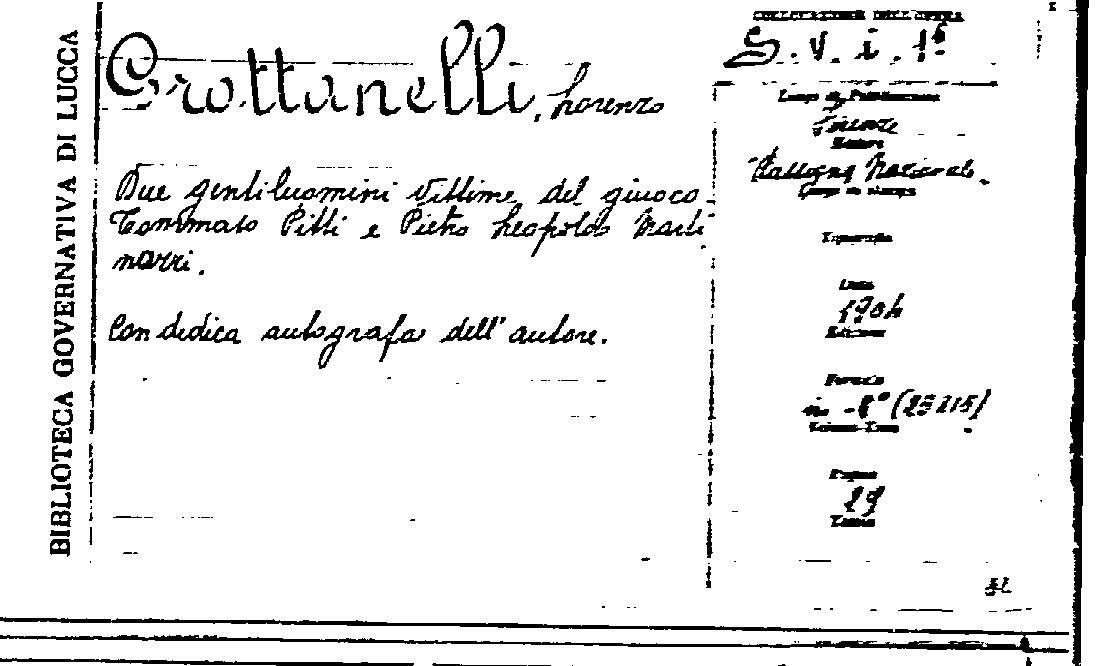 BIBLIOTECA GOVERNATIVA DI LUCCA
Grottanelli, Lorenzo
Due gentiluomini vittime del giuoco
Tommaso Pitti e Pietro Leopoldo Marti
nozzi.
Con dedica autografa dell'autore.
COLLOCAZIONE DELL'OPERA
Luogo di Pubblicazione
Firenze
Editore
Rassegna Nazionale.
Luogo di stampa
Tipografia
Data
1904
Edizione
Formato
in -8° (23x15)
Volume-Tomo
Pagine
29
Tavole